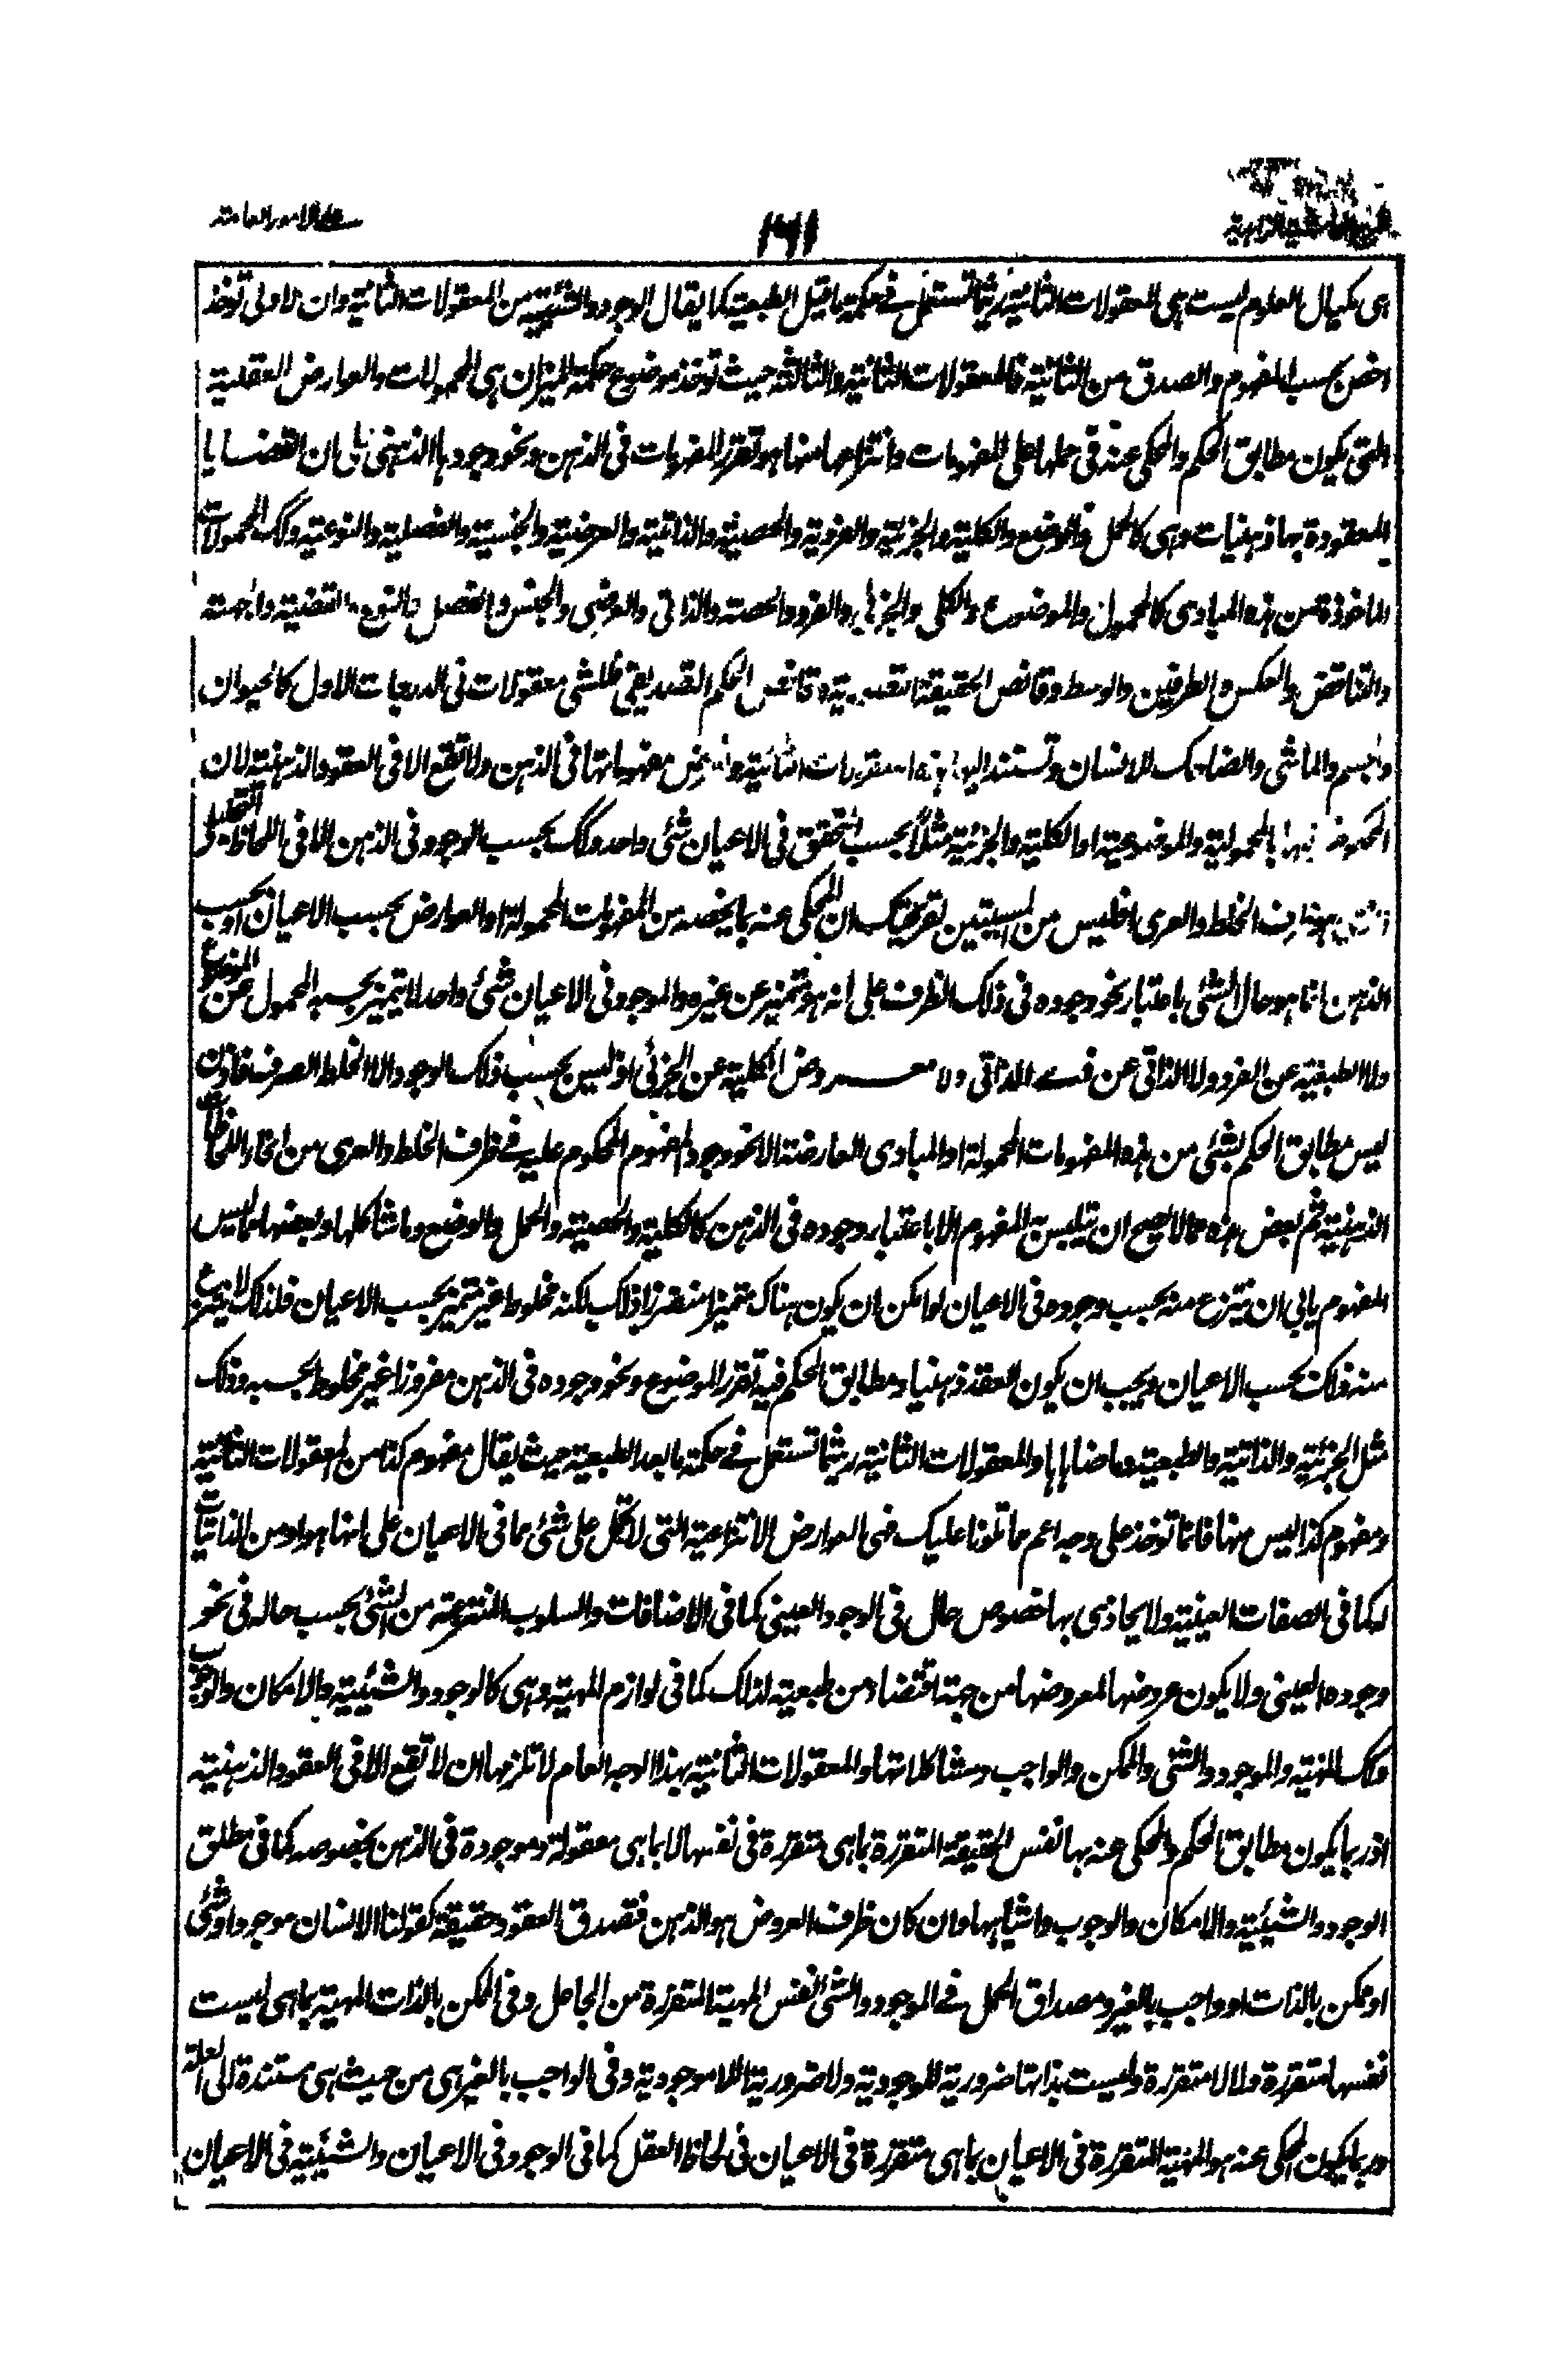 على الامور العامة
١٦١
هى مكيال العلوم ليست هى المعقولات الثانية ريثما تستعمل فى حكمة ما قبل الطبعية كما يقال الوجود والشيئية من المعقولات الثانية وان الاولى توخذ
اخص بحسب المفهوم والصدق من الثانية فالمعقولات الثانية والثالثة حيث توخذ موضوع حكمة الميزان هى المحمولات والعوارض العقلية
التى يكون مطابق الحكم والمحكى عنه فى حملها على المفهومات وانتزاعها منها هو تقرر المفهومات فى الذهن ونحو وجودها الذهنى على ان القضايا
المعقودة بها ذهنيات وهى كالحمل والوضع والكلية والجزئية والفردية والحصية والذاتية والعرضية والجنسية والفصلية والنوعية وكك المحمولات
الماخوذة من هذه المبادى كالمحمول والموضوع والكلى والجزئى والفرد والحصة والذاتى والعرضى والجنس والفصل والنوع والقضية والجهة
والتناقض والعكس والطرفين والوسط وقانص الحقيقة التصورية وقانص الحكم التصديقى فللشى معقولات فى الدرجات الاول كالحيوان
والجسم والماشى والضاحك للانسان وتستند اليها هذه المعقولات الثانية مفهوماتها فى الذهن ولا تقع الا فى العقود الذهنية لان
المحكوم عليها بالمحمولية والموضوعية او الكلية والجزئية مثلاً بحسب التحقق فى الاعيان شئ واحد وكك بحسب الوجود فى الذهن الا فى اللحاظ التفصيلى و
ظرف الخلط والعرى افليس من المستبين لقريحتك ان المحكى عنه بما يخصه من المفهومات المحمولة او العوارض بحسب الاعيان او بحسب
الذهن انما هو حال الشئ باعتبار نحو وجوده فى ذلك الظرف على انه هو متميز عن غيره والموجود فى الاعيان شئ واحد لا يتميز بحسبه المحمول عن الموضوع
ولا الطبيعة عن الفرد ولا الذاتى عن ذى الذاتى ولا معروض الكلية عن الجزئى اذ ليس بحسب ذلك الوجود الا الخلط الصرف فاذن
ليس مطابق الحكم بشئ من هذه المفهومات المحمولة او المبادى العارضة الا نحو وجود المفهوم المحكوم عليه فى ظرف الخلط والعرى من انحاء اللحاظات
الذهنية ثم بعض هذه مما لا يصح ان يتلبس به المفهوم الا باعتبار وجوده فى الذهن كالكلية والحصية والحمل والوضع وما شاكلها وبعضها مما ليس
المفهوم يابى ان ينتزع منه بحسب وجوده فى الاعيان لو امكن ان يكون هناك متميزا منفرزا ذلك لكنه مخلوط غير متميز بحسب الاعيان فلذلك لا ينتزع
منه ذلك بحسب الاعيان ويجب ان يكون العقد ذهنيا ومطابق الحكم فيه تقرر الموضوع ونحو وجوده فى الذهن مفروزا غير مخلوط بحسبه وذلك
مثل الجزئية والذاتية والطبعية وما ضاهاها والمعقولات الثانية ريثما تستعمل فى حكمة ما بعد الطبعية حيث يقال مفهوم كذا من المعقولات الثانية
ومفهوم كذا ليس منها فانما توخذ على وجه اعم مما تلونا عليك فهى العوارض الانتزاعية التى لا تحمل على شئ ما فى الاعيان على انها هو او من الذاتيات
له كما فى الصفات العينية ولا يحاذى بها خصوص حال فى الوجود العينى كما فى الاضافات والسلوب المنتزعة من الشئ بحسب حاله فى نحو
وجوده العينى ولا يكون عروضها لمعروضها من جهة اقتضاء من طبعية لذلك كما فى لوازم المهية وهى كالوجود والشيئية والامكان والوجوب
وكك المهية والموجود والشئ والممكن والواجب ومشاكلاتها والمعقولات الثانية بهذا الوجه العام لا تلزمها ان لا تقع الا فى العقود الذهنية
اذ ربما يكون مطابق الحكم والمحكى عنه بها نفس الحقيقة المتقررة بما هى متقررة فى نفسها لا بما هى معقولة وموجودة فى الذهن بخصوصه كما فى مطلق
الوجود والشيئية والامكان والوجوب واشباهها وان كان ظرف العروض هو الذهن فتصدق العقود حقيقة كقولنا الانسان موجود او شئ
او ممكن بالذات او واجب بالغير ومصداق الحمل فى الموجود والشئ نفس المهية المتقررة من الجاعل وفى الممكن بالذات المهية بما هى ليست
نفسها متقررة ولا لا متقررة وليست بذاتها ضرورية للموجودية ولا ضرورية اللاموجودية وفى الواجب بالغير هى من حيث هى مستندة الى العلة
وربما يكون المحكى عنه هو المهية المتقررة فى الاعيان بما هى متقررة فى الاعيان فى لحاظ العقل كما فى الوجود فى الاعيان والشيئية فى الاعيان